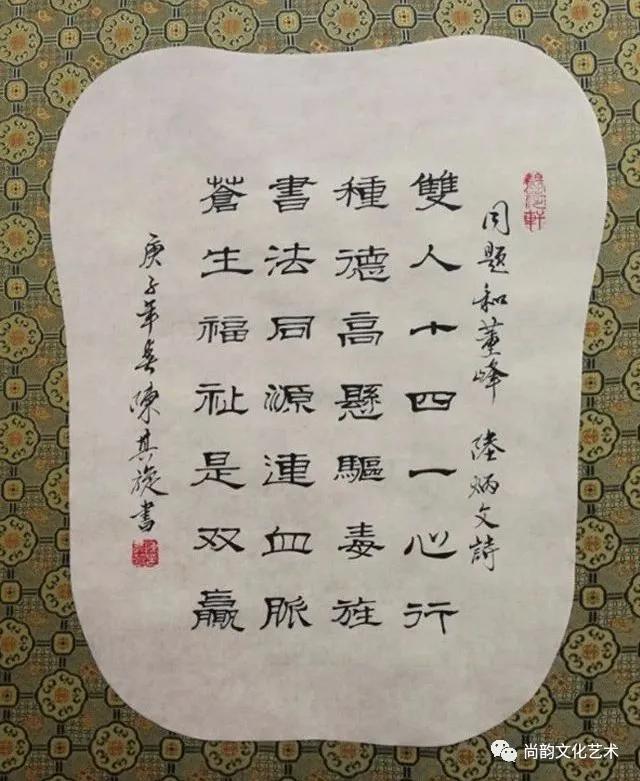 同題和董峰 陸炳文詩
雙人十四一心行
種德高懸驅毒旌
書法同源連血脈
蒼生福祉是双贏
庚子年春陳其旋書
尚韵文化艺术